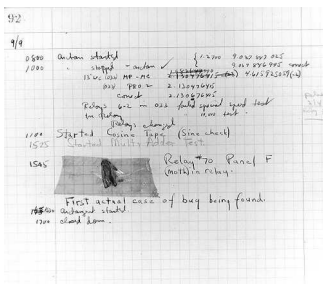 92
9/9
0800 antan started
1000 " stopped - antan ✓ { 1.2700 9.037 847 025
9.037 846 995 correct
13" UC (032) MP-MC 4.615925059(-2)
033 PRO 2 2.130476415
correct 2.130676415
Relays 6-2 in 033 failed special speed test
in Relay 10.00 test.
Relays changed
1100 Started Cosine Tape (Sine check)
1525 Started Multi Adder Test.
1545 Relay #70 Panel F
(Moth) in relay.
First actual case of bug being found.
antangent started.
1700 closed down.